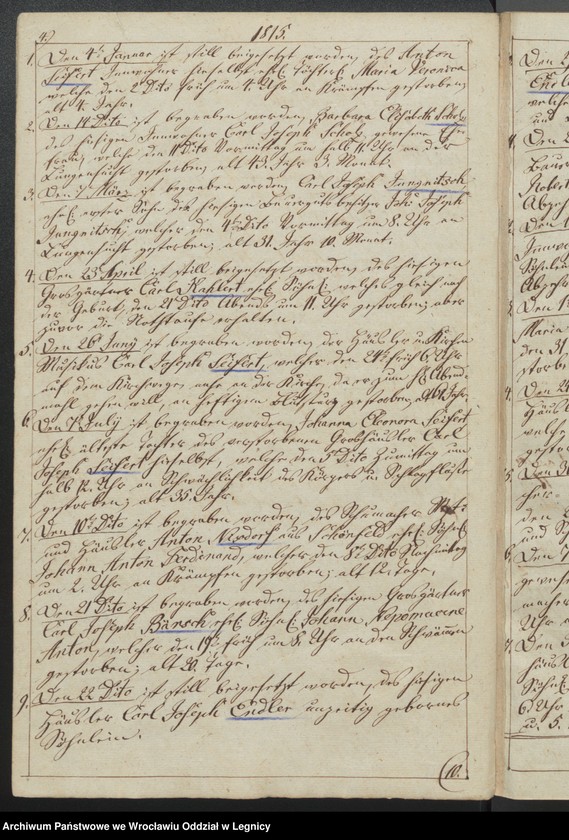 4.
1815.
1. Den 4t Januar ist still beigesetzt worden, des Anton
Seifert Inwohner hieselbst ehel. Töchterl. Maria Veronica
welche den 2t Dito früh um 4 Uhr an Krämpfen gestorben;
alt 4 Jahr.
2. Den 14t Dito ist begraben worden, Barbara Elisabeth Scholz
des hiesigen Inwohner Carl Joseph Scholz, gewesene Ehe-
frau, welche den 11t Dito Vormittag um halb 11 Uhr an der
Lungensucht gestorben, alt 43 Jahr 3 Monat.
3. Den 7 März ist begraben worden Carl Joseph Jungnitsch
ehel. erster Sohn des hiesigen Bauergutsbesitzer Joseph
Jungnitsch, welcher den 4t Dito Vormittag um 8. Uhr an
Lungensucht gestorben; alt 31. Jahr 10. Monat.
4. Den 23 April ist still beigesetzt worden, des hiesigen
Grosgärtner Carl Kahlert ehel. Söhnl. welches gleich nach
der Geburt, den 21 Dito Abends um 11. Uhr gestorben; aber
zuvor die Nothtaufe erhalten.
5. Den 26t Juny ist begraben worden der Häusler u. Kirchen
Musikus Carl Joseph Seifert, welcher den 24t früh 6 Uhr
auf dem Kirchwege, nahe an der Kirche, da er zum hl. Abend-
mahl gehen will, an heftigen Blutsturz gestorben, alt Jahr.
6. Den 7t July ist begraben worden, Johanna Eleonora Seifert
ehel. älteste Tochter des verstorbenen Groshäusler Carl
Joseph Seifert hieselbst, welche den 5t Dito um
halb 12. Uhr an Schwächlichkeit des Körpers u. Schlagfluße
gestorben; alt 35 Jahr.
7. Den 10t Dito ist begraben worden, des Schumacher
und Häusler Anton aus Schönfeld ehel. Söhnl.
Johann Anton Ferdinand, welcher den 8t Dito Nachmittag
um 2. Uhr an Krämpfen gestorben; alt 12. Tage.
8. Den 21 Dito ist begraben worden, des hiesigen Grosgärtner
Carl Joseph Bänsch ehel. Söhnl. Johann Nepomucene
Anton, welcher den 19t früh um 8. Uhr an den Schwämen
gestorben; alt 20. Tage.
9. Den 22 Dito ist still beigesetzt worden, des hiesigen
Häusler Carl Joseph Endler unzeitig gebornes
Söhnlein.
10.
Archiwum Państwowe we Wrocławiu Oddział w Legnicy